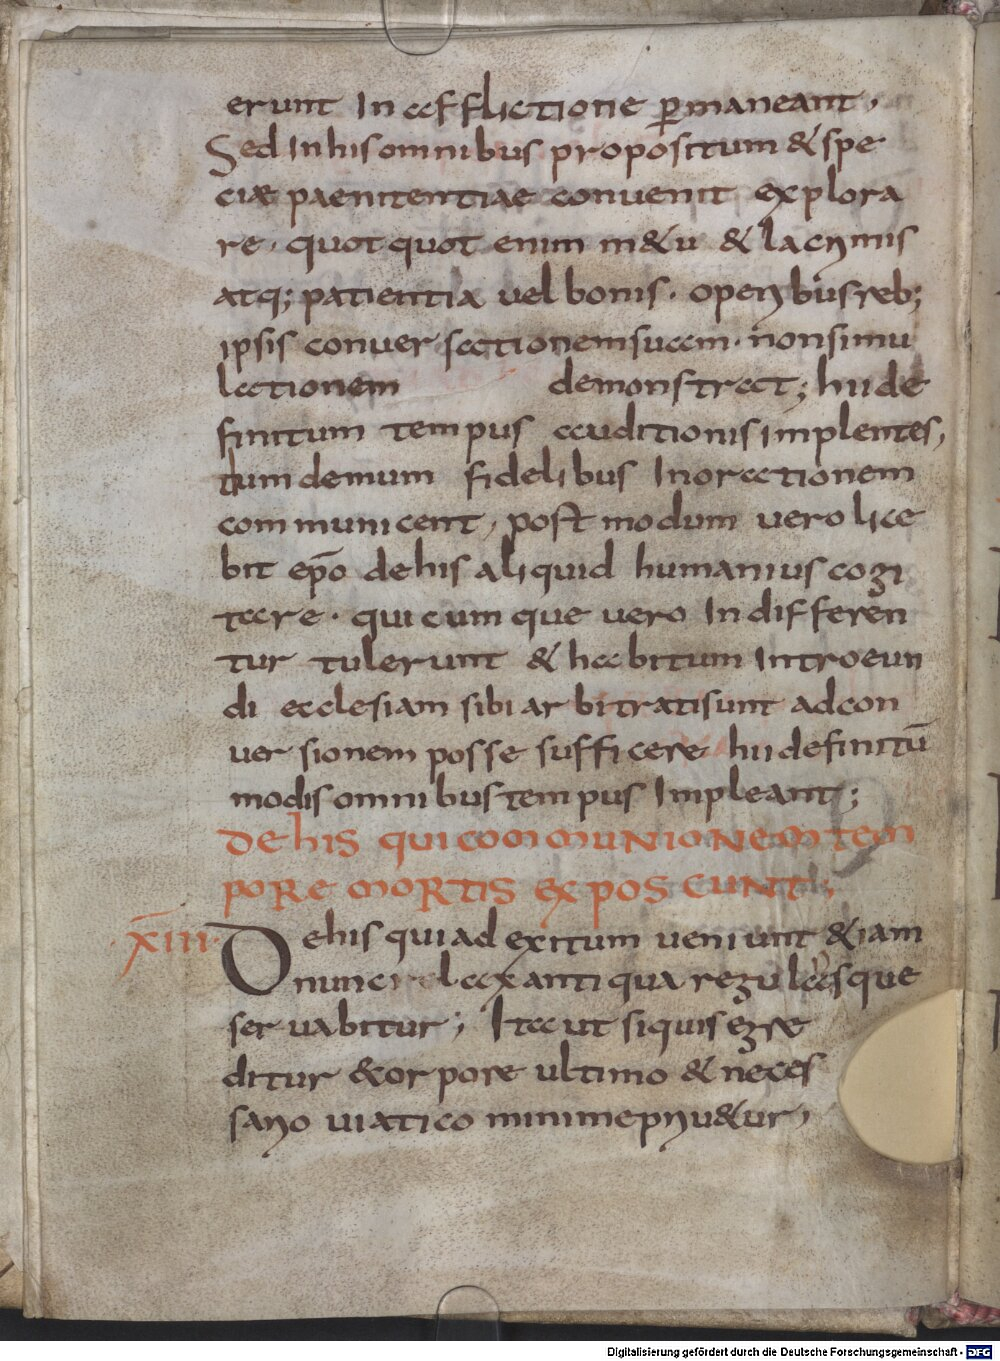 erunt In afflictione ꝑmaneant,
Sed Inhisomnibus propositum & spe
ciæ paenitentiae convenit explora
re. quotquot enim m&u & lacrimis
atq; patientia vel bonis. operibus reb;
ipsis conuersationemsuam. nonsimu
lationem demonstrat; hii de
finitum tempus auditionis implentes,
tumdemum fidelibus Inorationem
communicent, postmodum vero lice
bit ep̅o dehis aliquid humanius cogi
tare. quicumque vero Indifferen
tur tulerunt & habitum Introeun
di ecclesiam sibi arbitratisunt adcon
uersionem posse sufficere hii definitū
modisomnibus tempus Impleant;
De his qui communionem tem
pore mortis exposcunt;
·XIII· Dehis quiad exitum veniunt & iam
nunc lex antiqua regulasque
servabitur; Ita ut siquis egre
ditur & corpore ultimo & neces
sario viatico minimepriu&ur,
Digitalisierung gefördert durch die Deutsche Forschungsgemeinschaft - DFG